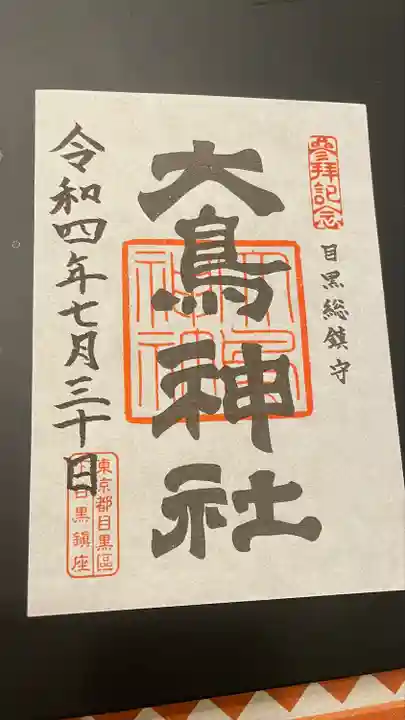 參拝記念
目黒総鎮守
大鳥神社
大鳥神社
令和四年七月三十日
東京都目黒區
下目黒鎮座